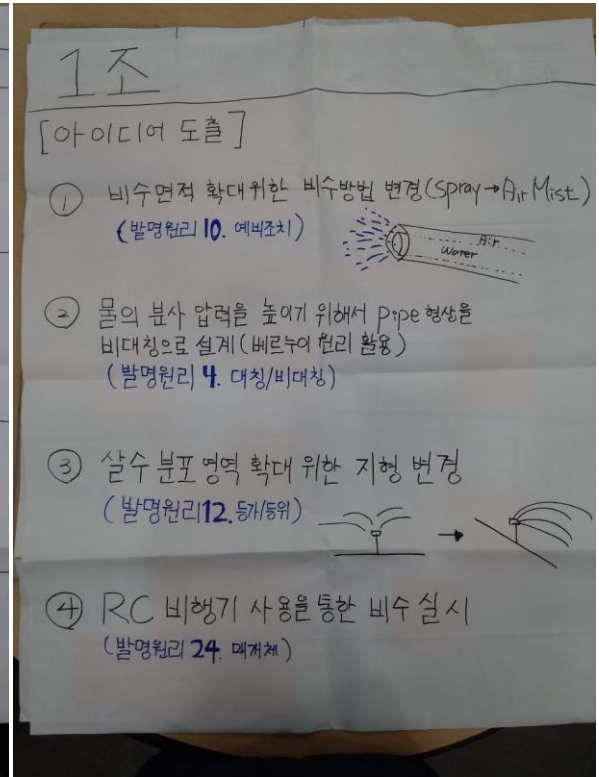 1조
[아이디어 도출]
① 비수면적 확대위한 비수방법 변경(Spray→Air Mist)
(발명원리 10. 예비조치)
Air
Water
② 물의 분사 압력을 높이기 위해서 pipe 형상을
비대칭으로 설계(베르누이 원리 활용)
(발명원리 4. 대칭/비대칭)
③ 살수 분포 영역 확대 위한 지형 변경
(발명원리 12. 등가/등위)
④ RC 비행기 사용을 통한 비수 실시
(발명원리 24. 매개체)